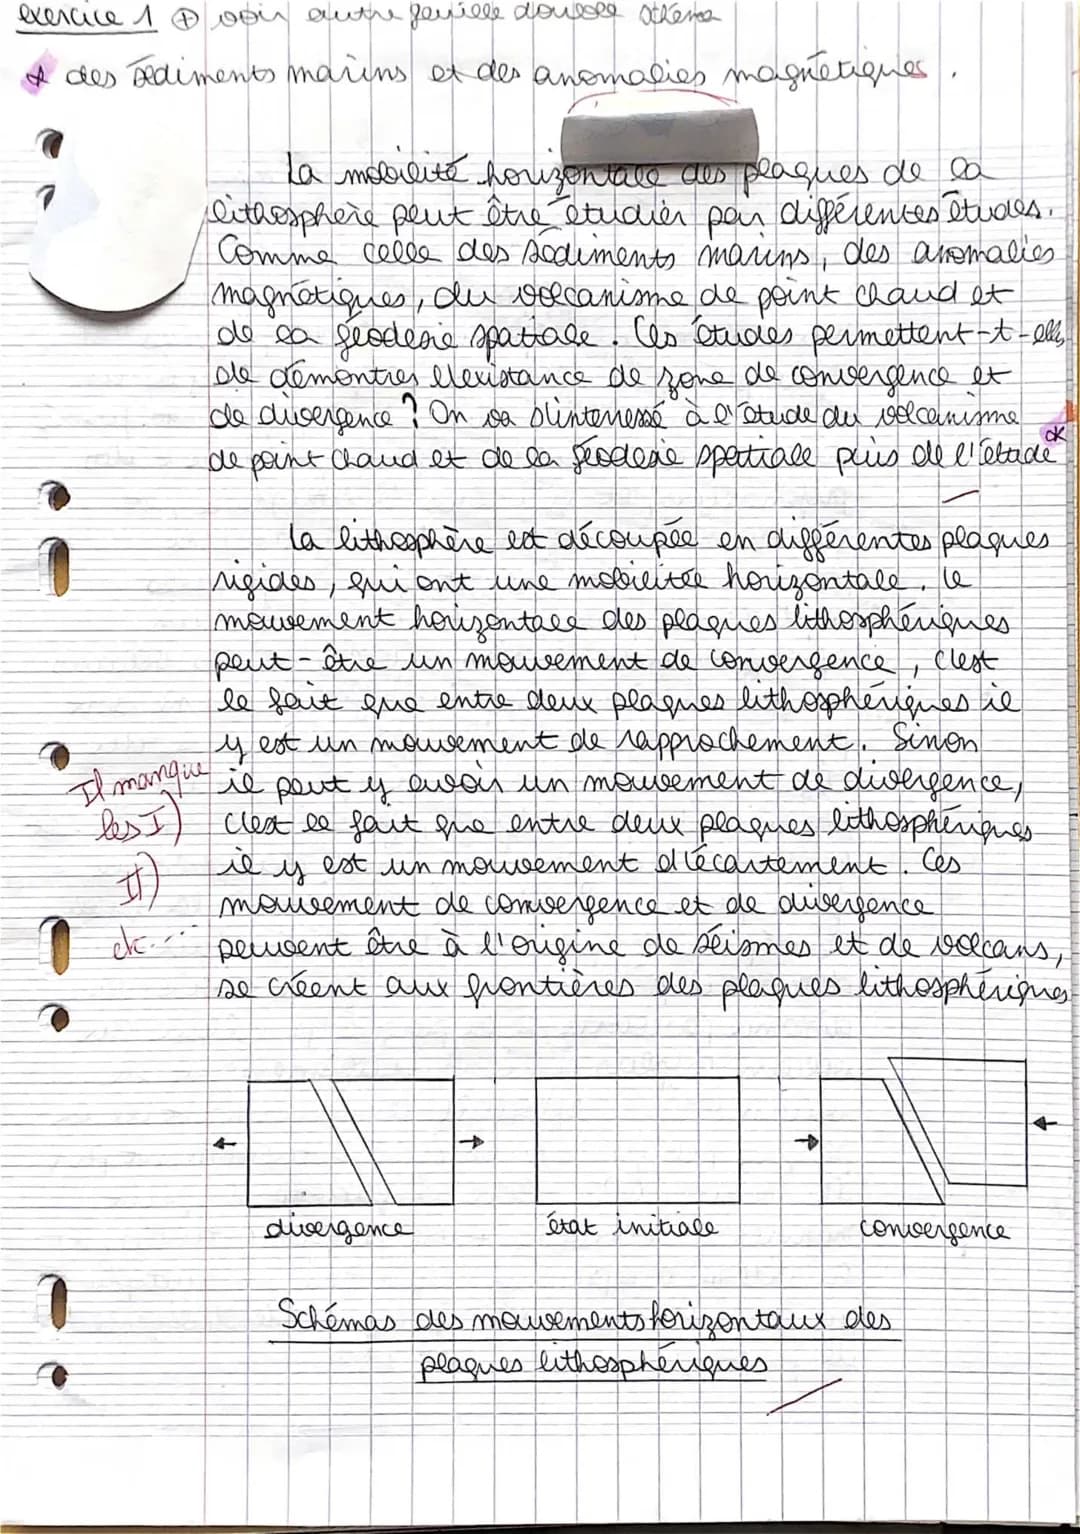 exercice 1 ⊕ voir autre feuille double schéma
* des sédiments marins et des anomalies magnétiques.
La mobilité horizontale des plaques de la
lithosphère peut être étudier par différentes études.
Comme celle des sédiments marins, des anomalies
magnétiques, du volcanisme de point chaud et
de la géodésie spatiale. Ces études permettent-t-elles
de démontrer l'existance de zone de convergence et
de divergence ? On va s'interessé à l'étude du volcanisme
de point chaud et de la géodésie spatiale puis de l'étude *
La lithosphère est découpée en différentes plaques
rigides, qui ont une mobilitée horizontale. Le
mouvement horizontale des plaques lithosphériques
peut-être un mouvement de convergence, c'est
le fait que entre deux plaques lithosphériques il
y est un mouvement de rapprochement. Sinon
il peut y avoir un mouvement de divergence,
c'est le fait que entre deux plaques lithosphériques
il y est un mouvement d'écartement. Ces
mouvement de convergence et de divergence
peuvent être à l'origine de séismes et de volcans,
se créent aux frontières des plaques lithosphériques
Il manque
les I)
II)
etc...
divergence
état initiale
convergence
Schémas des mouvements horizontaux des
plaques lithosphériques